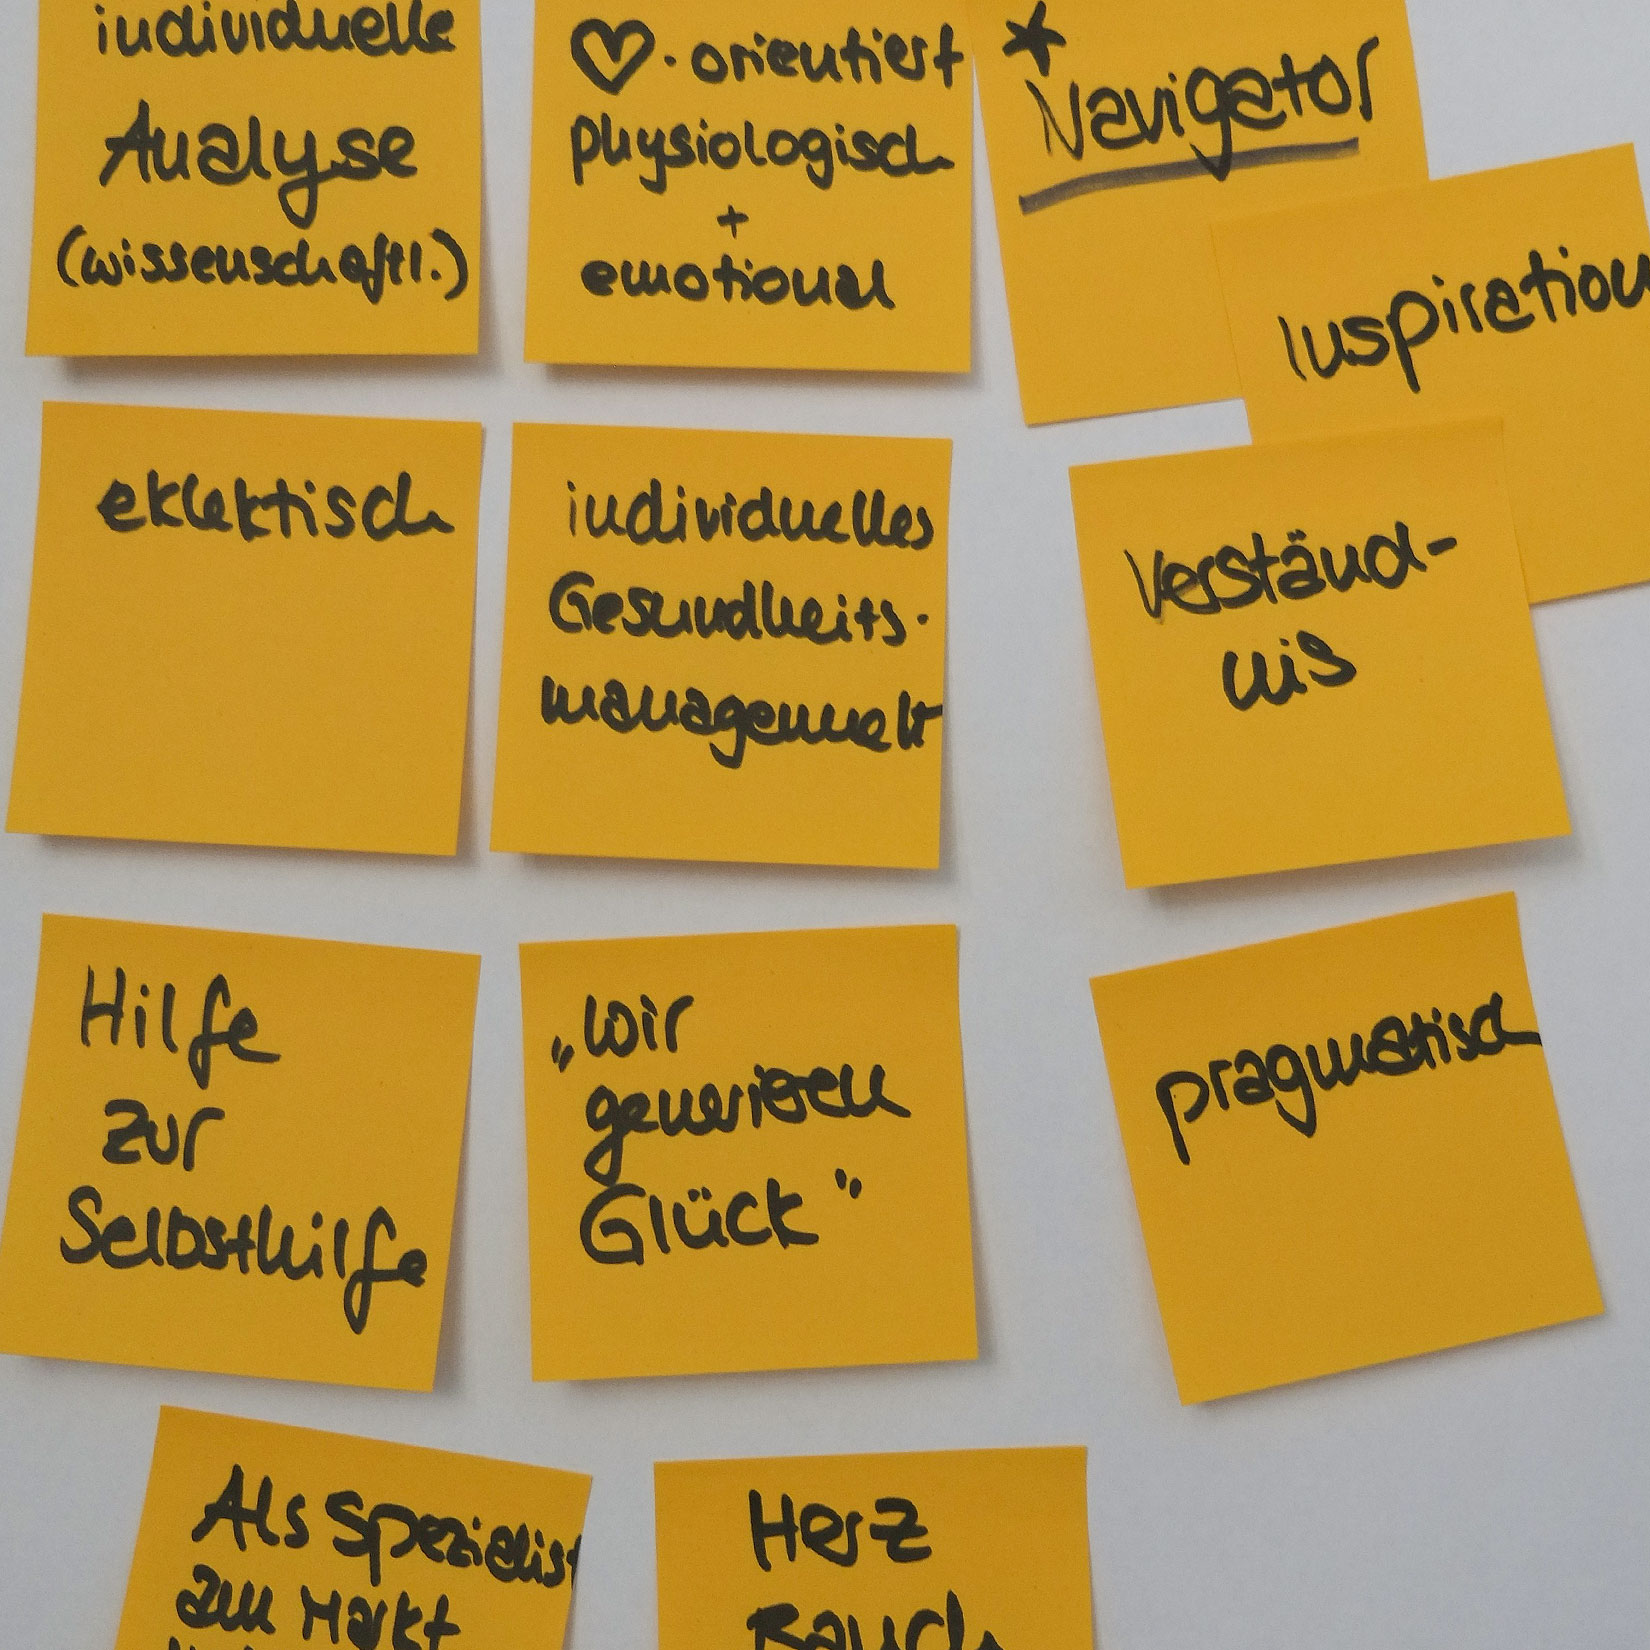 individuelle
Analyse
(wissenschaftl.)
♡-orientiert
physiologisch
+
emotional
* Navigator
Inspiration
eklektisch
individuelles
Gesundheits-
management
Verständ-
nis
Hilfe
zur
Selbsthilfe
„Wir
generieren
Glück"
pragmatisch
Als Spezialist
am Markt
Herz
Bauch